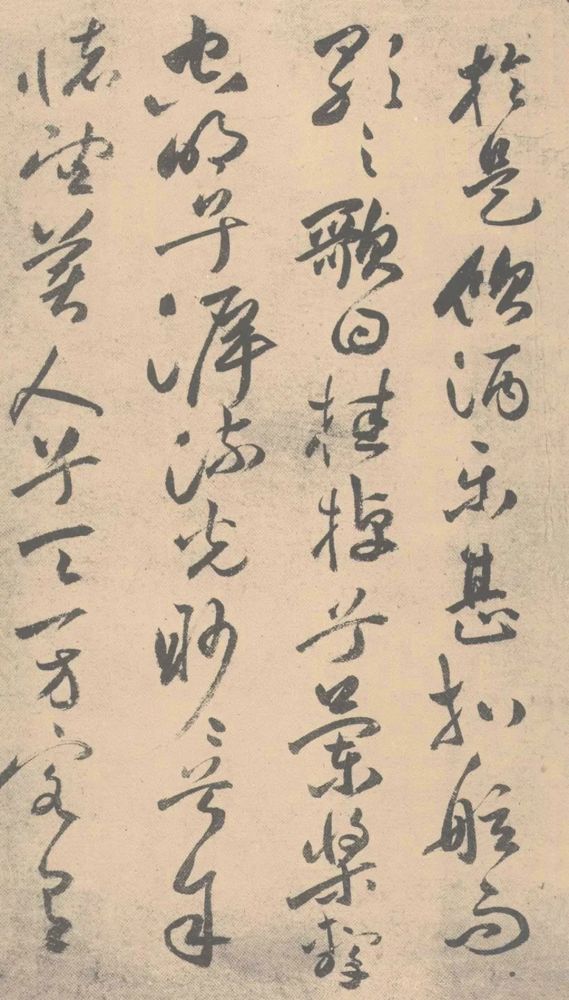 於是飲酒樂甚扣舷而
歌之歌曰桂棹兮蘭槳擊
空明兮泝流光眇〻兮予
懷望美人兮天一方客有